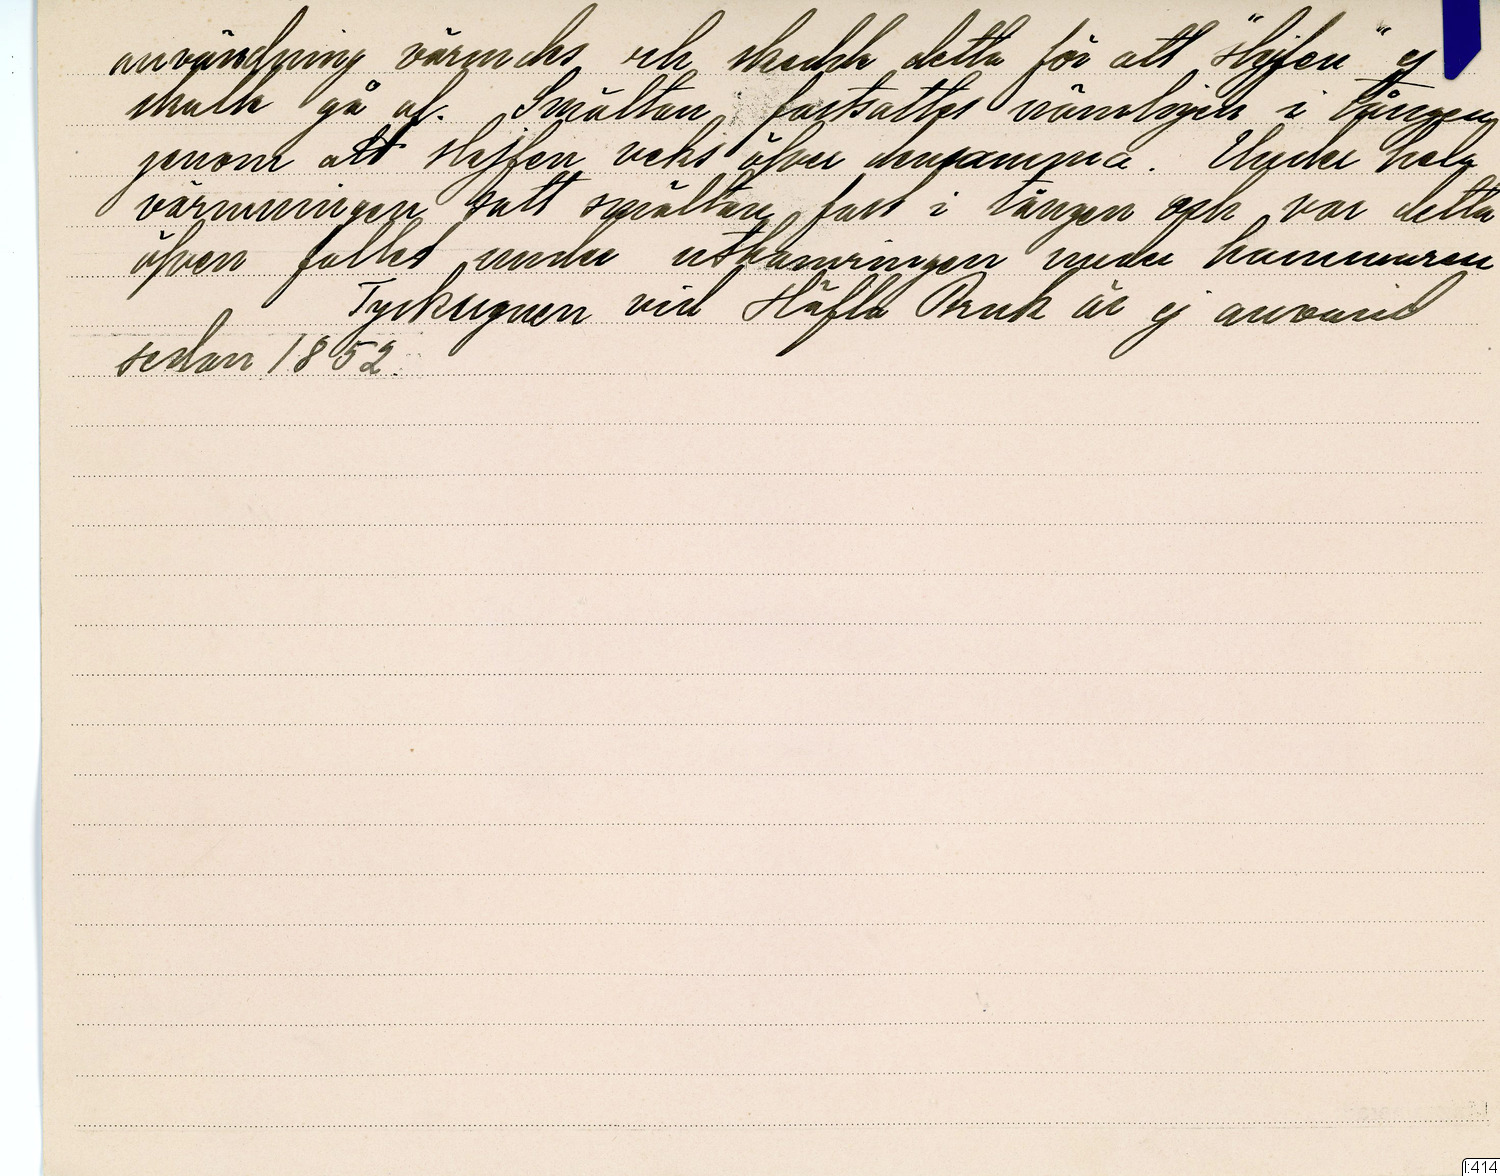 användning värmdes och skedde detta för att "slejfen" ej
skulle gå af. Smältan fastsattes nämligen i tången
genom att slejfen veks öfver densamma. Under hela
värmningen satt smältan fast i tången och var detta
äfven fallet under uthamringen under hammaren
Tyskugnen vid Häfla Bruk är ej använd
sedan 1852.
1:414